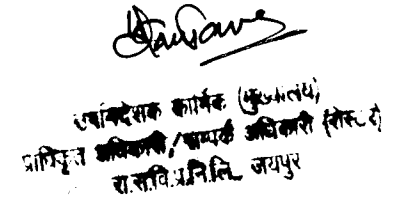 कार्मिक (मुख्यालय)
प्राधिकृत अधिकारी/सम्पर्क अधिकारी (रोस्टर)
रा.स.वि.प्र.नि.लि. जयपुर